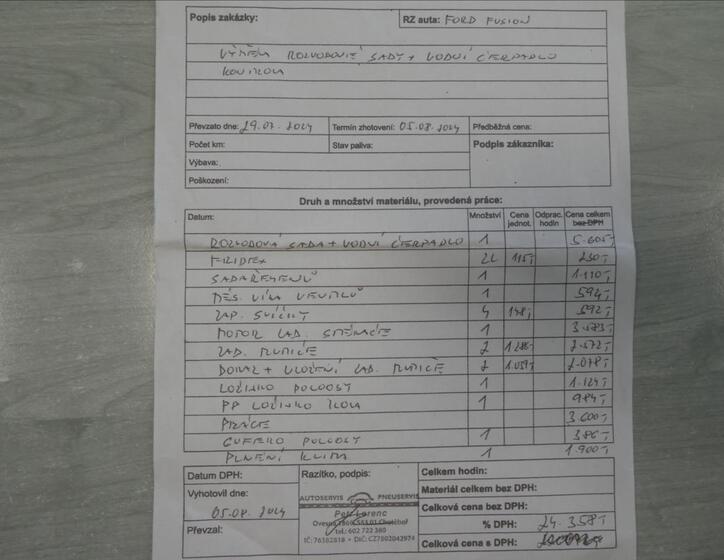 Popis zakázky: RZ auta: FORD FUSION
VÝMĚNA ROZVODOVÉ SADY + VODNÍ ČERPADLO
KONTROLA
Převzato dne: 29.07.2024 Termín zhotovení: 05.08.2024 Předběžná cena:
Počet km: Stav paliva: Podpis zákazníka:
Výbava:
Poškození:
Druh a množství materiálu, provedená práce:
Datum: Množství Cena jednot. Odprac. hodin Cena celkem bez DPH
ROZVODOVÁ SADA + VODNÍ ČERPADLO 1 5.605,-
FRIDEX 2L 115,- 230,-
SADA ŘEMENŮ 1 1.110,-
TĚS. VÍKA VENTILŮ 1 594,-
ZAP. SVÍČKY 4 148,- 592,-
MOTOR ZAD. STĚRAČE 1 3.583,-
ZAD. TLUMIČE 2 1.286,- 2.572,-
DORAZ + ULOŽENÍ ZAD. TLUMIČE 2 1.039,- 2.078,-
LOŽISKO POLOOSY 1 1.124,-
PP LOŽISKO KOLA 1 984,-
PRÁCE 3.600,-
GUFERO POLOOSY 1 386,-
PLNĚNÍ KLIMA 1 1.900,-
Datum DPH: Razítko, podpis: Celkem hodin:
Materiál celkem bez DPH:
Vyhotovil dne: 05.08.2024 AUTOSERVIS PNEUSERVIS Celková cena bez DPH:
Petr Lorenc
% DPH: 24.358,-
tel.: 602 722 380
Převzal: IČ: 76382818 • DIČ: CZ7802042974 Celková cena s DPH: